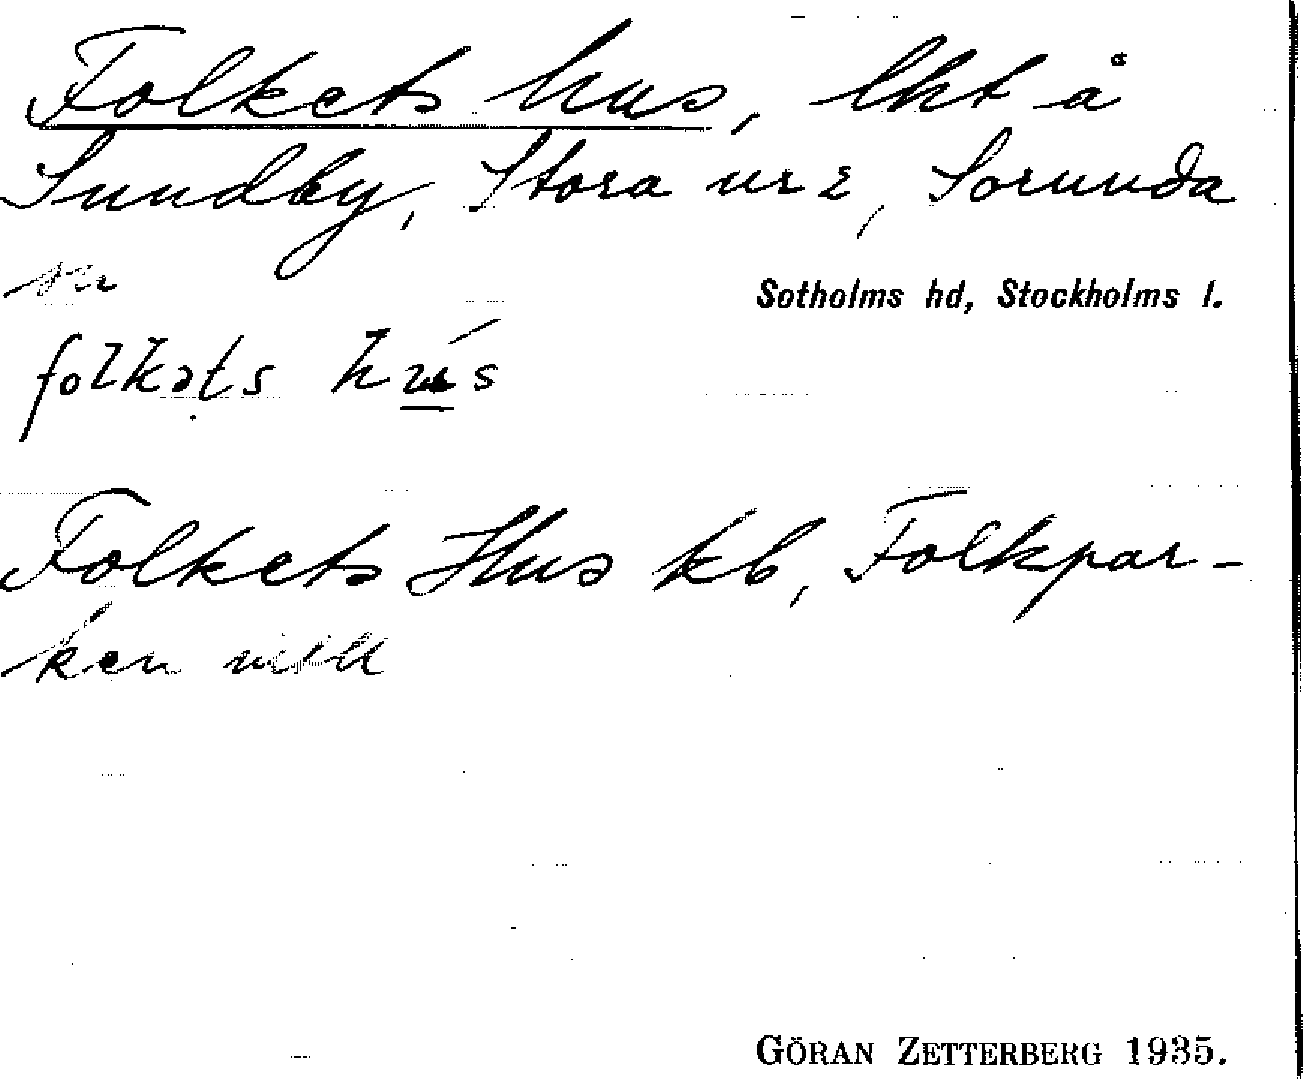 Folkets hus, lht å
Sundby, Stora nr 2, Sorunda
sn
Sotholms hd, Stockholms l.
folkəts hú̲s
Folkets Hus kb, Folkpar-
ken
GÖRAN ZETTERBERG 1935.